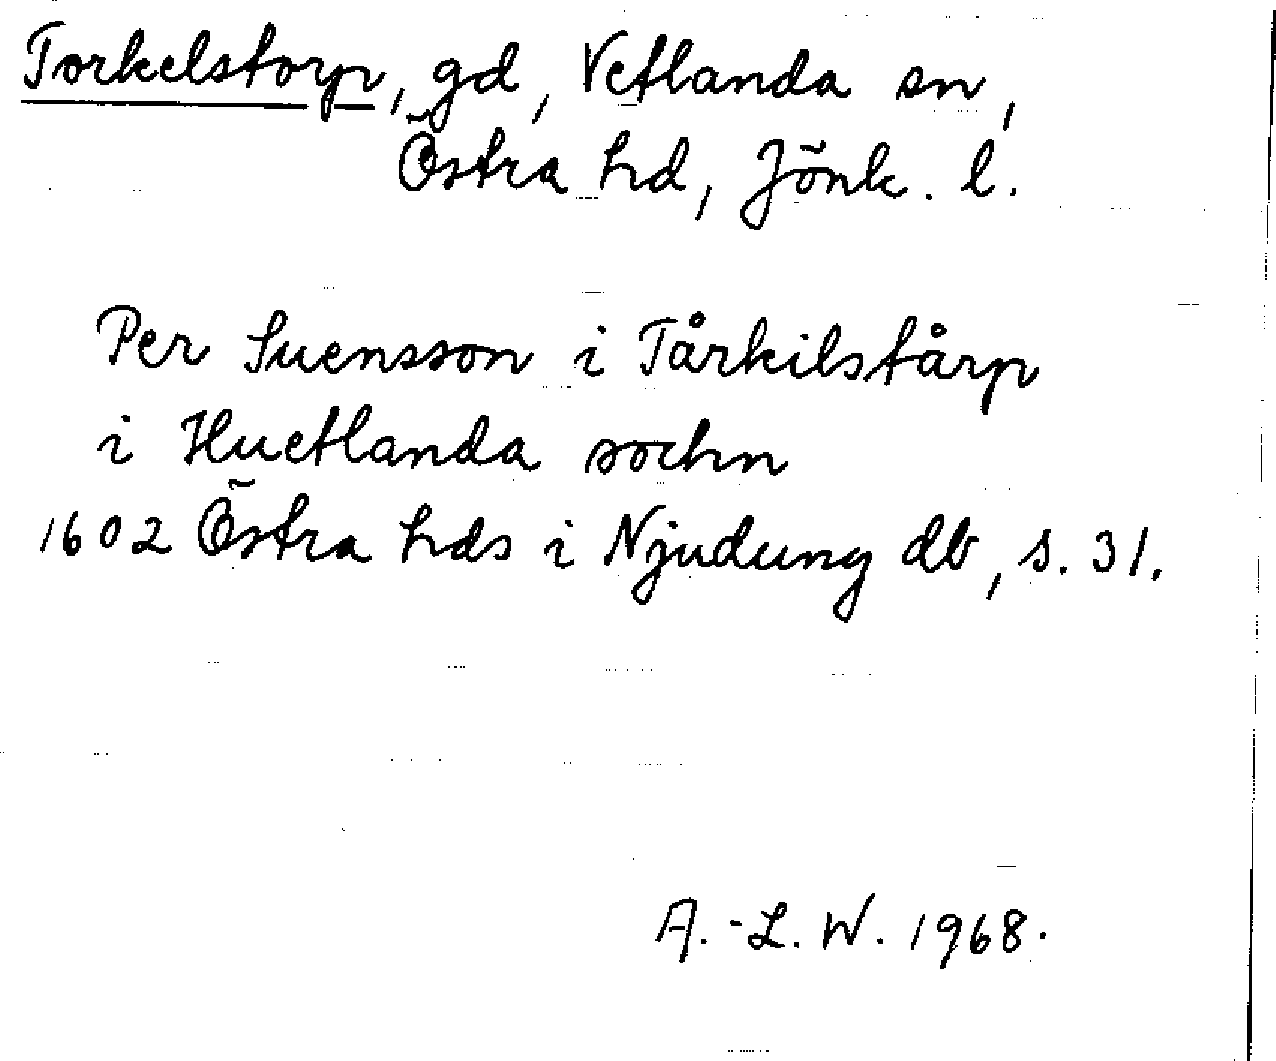 Torkelstorp, gd, Vetlanda sn,
Östra hd, Jönk. l.
Per Suensson i Tårkilstårp
i Huetlanda sochn
1602 Östra hds i Njudung db, s. 31.
A.-L. W. 1968.